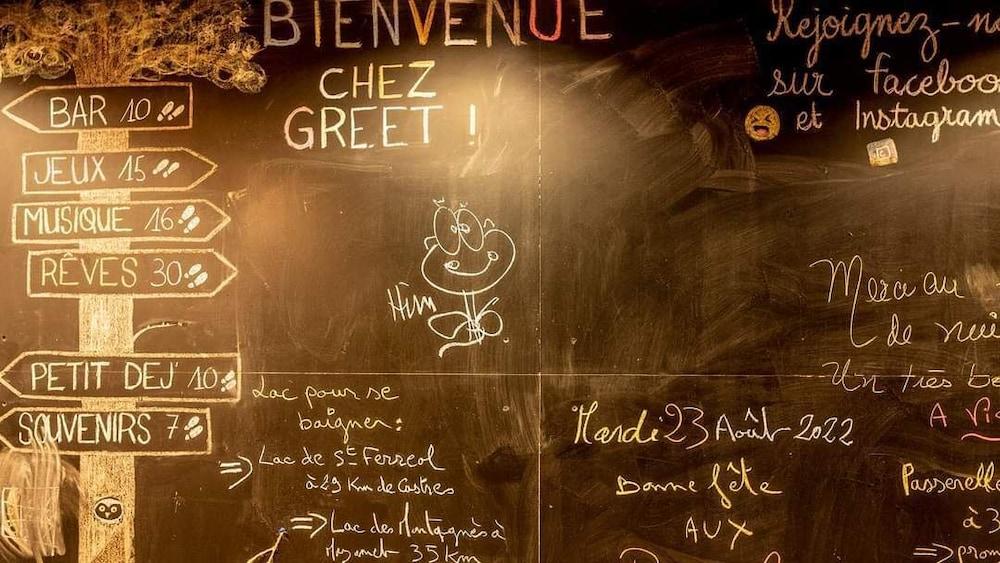 BIENVENUE
CHEZ
GREET !
Rejoignez-n
sur faceboo
et Instagram
BAR 10
JEUX 15
MUSIQUE 16
RÊVES 30
PETIT DEJ' 10
SOUVENIRS 7
Him
Merci au
de nui
Un très be
Lac pour se
baigner :
=> Lac de St Ferreol
à 29 Km de Castres
=> Lac des Montagnès à
Mazamet 35 Km
Mardi 23 Août 2022
Bonne fête
AUX
A Vi
Passerelle
à 3
=> prom